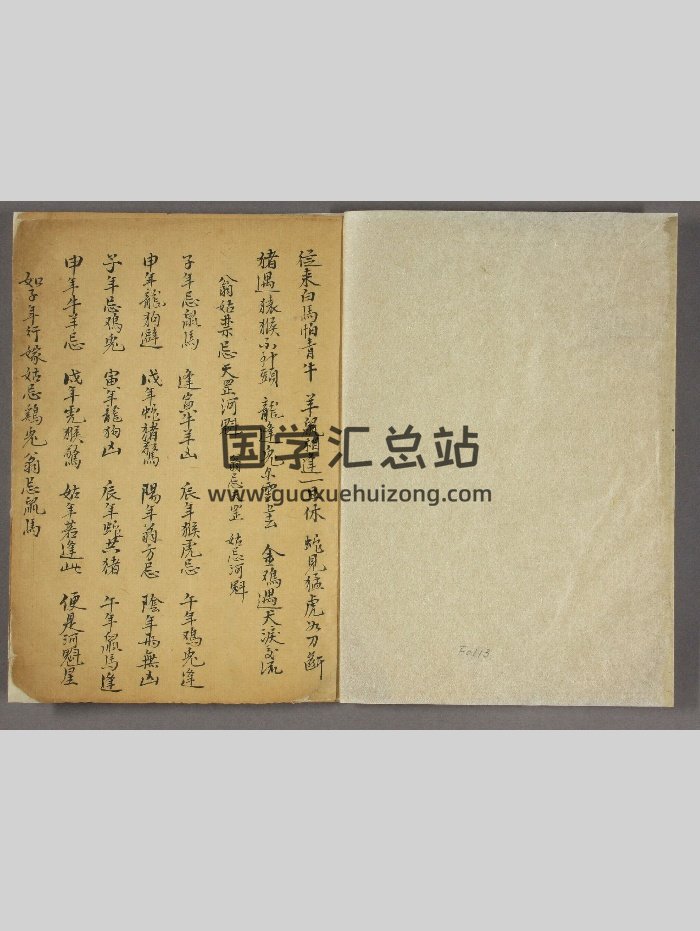 從来白馬怕青牛 羊鼠相逢一旦休 蛇見猛虎如刀斷
猪遇猿猴不到頭 龍逢兔 金鸡遇犬淚交流
翁姑禁忌天罡河魁 翁忌天罡 姑忌河魁
子年忌鼠馬 逢寅牛羊凶 辰年猴虎忌 午年鸡兎逢
申年龍狗避 戌年蛇猪驚 陽年翁方忌 陰年為無凶
子年忌鸡兎 寅年龍狗凶 辰年蛇共猪 午年鼠馬逢
申年牛羊忌 戌年虎猴驚 姑年若逢此 便是河魁星
如子年行嫁姑忌鷄兎翁忌鼠馬
国学汇总站
www.guoxuehuizong.com
Fol13